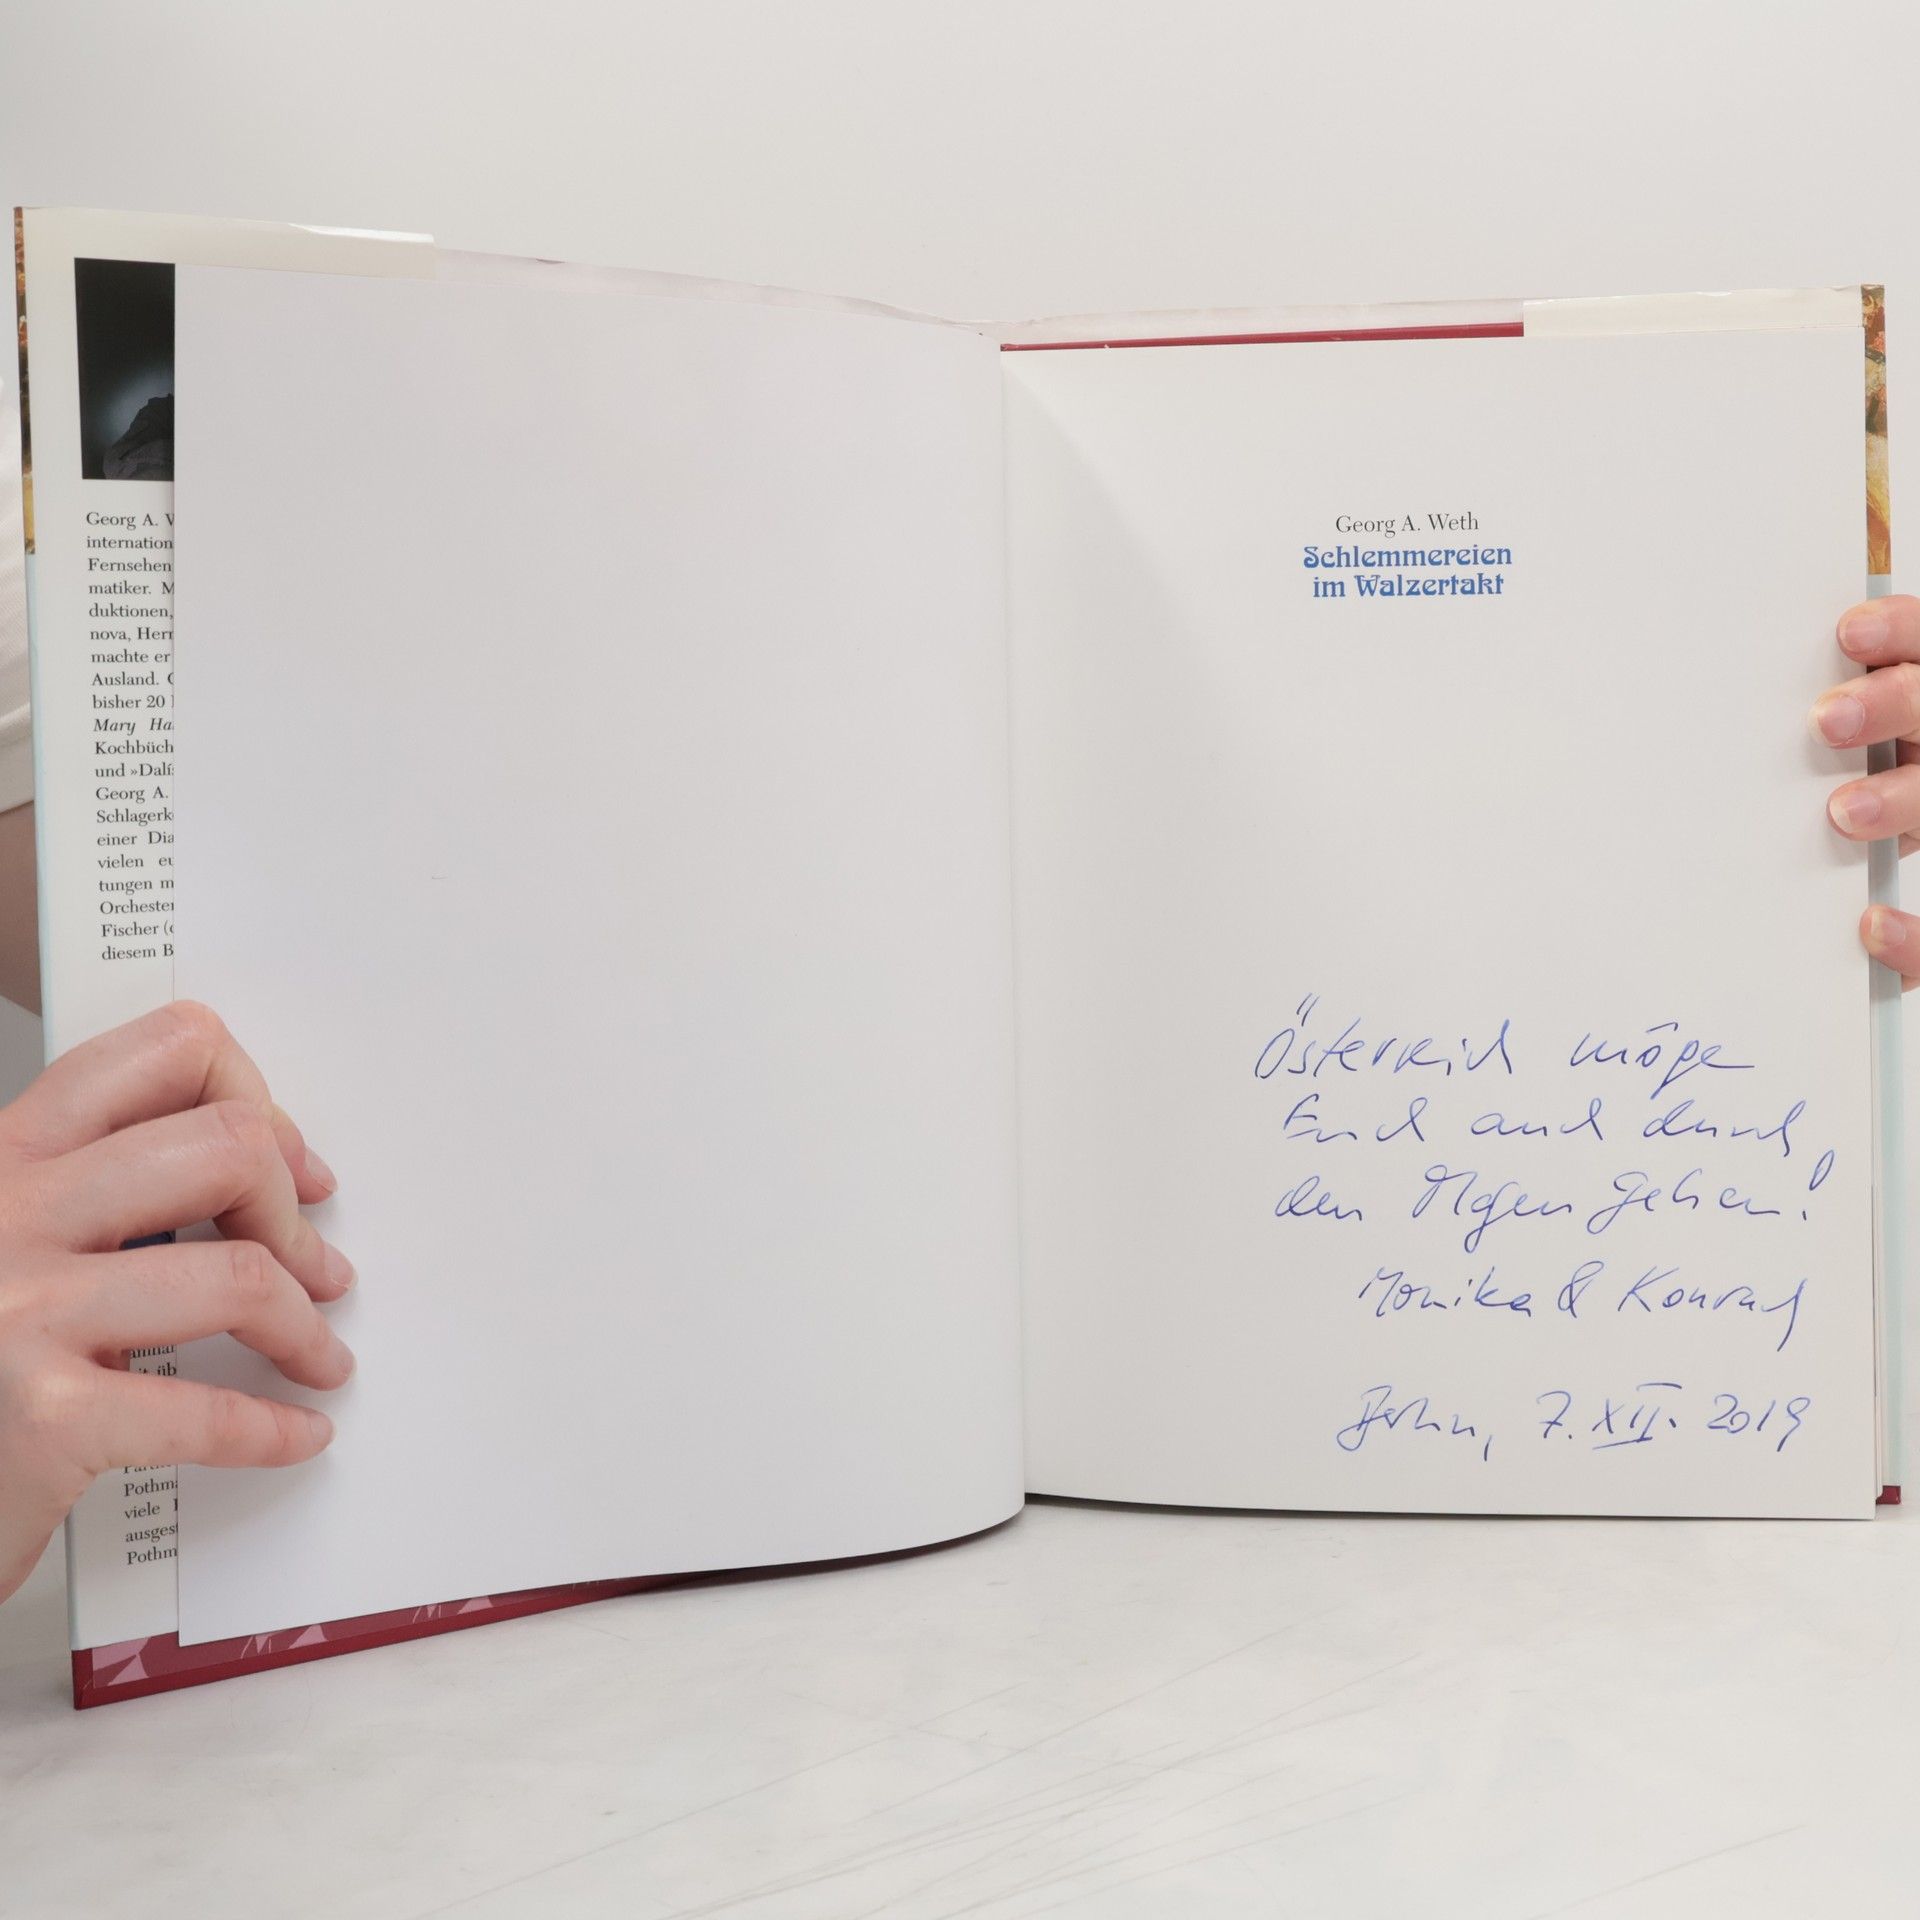 Georg A. W
internation
Fernsehen
matiker. M
duktionen,
nova, Herr
machte er
Ausland. G
bisher 20
Mary Ha
Kochbüch
und »Dalí
Georg A.
Schlagerk
einer Dia
vielen eu
tungen m
Orchester
Fischer (
diesem B
it üb
Pothma
viele
ausgest
Pothm
Georg A. Weth
Schlemmereien
im Walzertakt
Österreich möge
Euch auch durch
den Magen gehen!
Monika & Konrad
Berlin, 7. XII. 2019